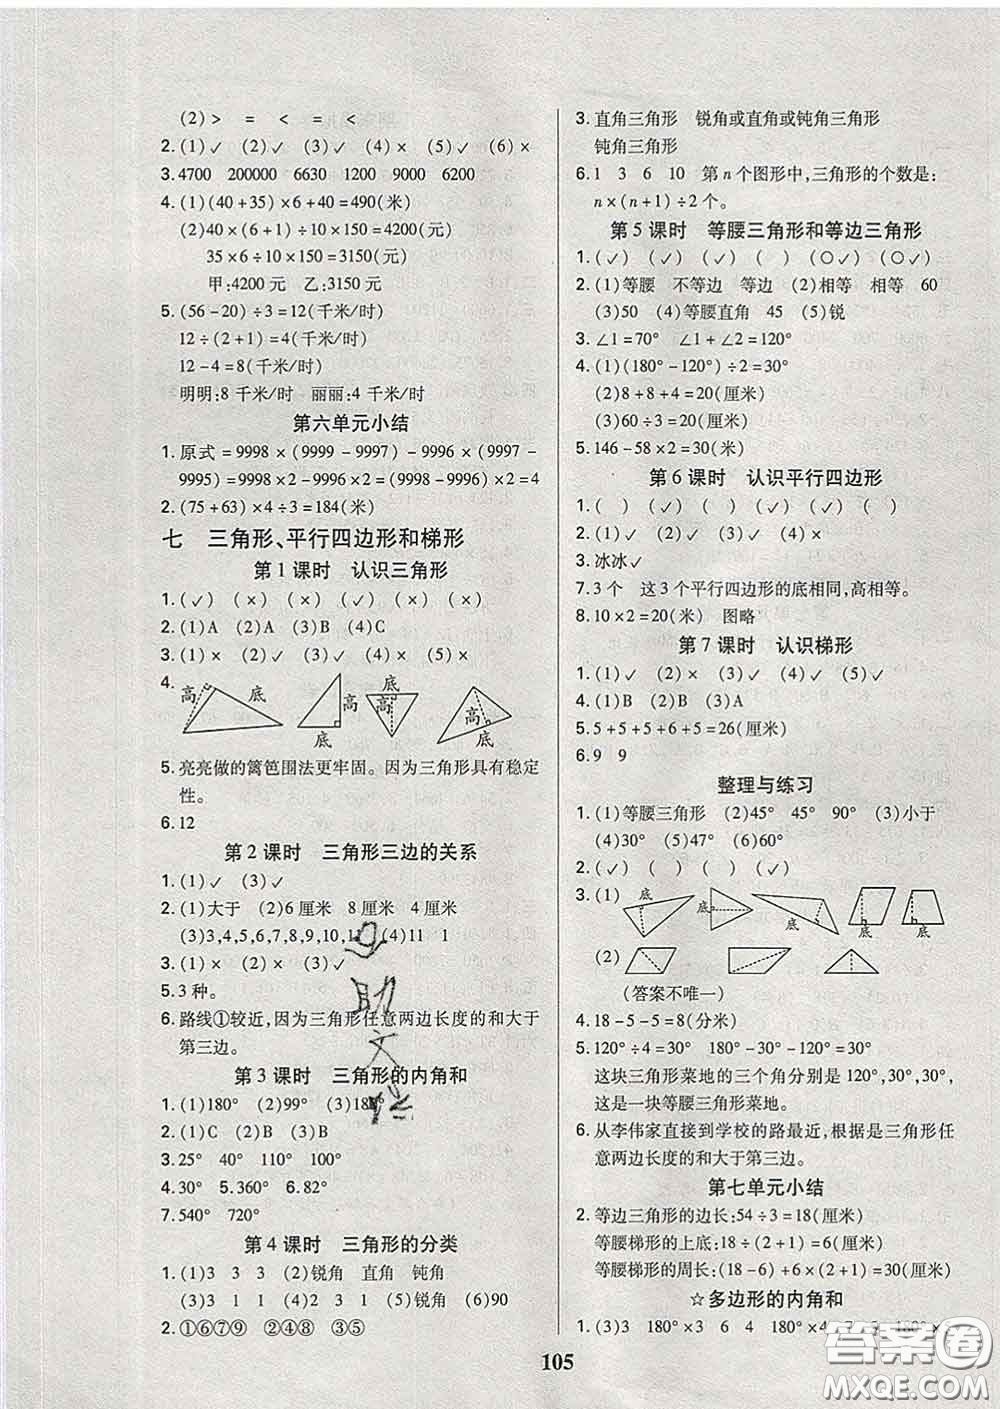 (2)> = < = <
2. (1)✓ (2)✓ (3)✓ (4)× (5)✓ (6)×
3. 4700 200000 6630 1200 9000 6200
4. (1)(40+35)×6+40=490(米)
(2)40×(6+1)÷10×150=4200(元)
35×6÷10×150=3150(元)
甲:4200元 乙:3150元
5. (56-20)÷3=12(千米/时)
12÷(2+1)=4(千米/时)
12-4=8(千米/时)
明明:8千米/时 丽丽:4千米/时
第六单元小结
1. 原式=9998×(9999-9997)-9996×(9997-
9995)=9998×2-9996×2=(9998-9996)×2=4
2. (75+63)×4÷3=184(米)
七 三角形、平行四边形和梯形
第1课时 认识三角形
1. (✓) (×) (×) (✓) (×)
2. (1)A (2)A (3)B (4)C
3. (1)× (2)✓ (3)✓ (4)× (5)×
4. 高 底 高 底 底 高 底 高
5. 亮亮做的篱笆围法更牢固。因为三角形具有稳定
性。
6. 12
第2课时 三角形三边的关系
1. (1)✓ (3)✓
2. (1)大于 (2)6厘米 8厘米 4厘米
(3)3,4,5,6,7,8,9,10,11 (4)11 1
3. (1)× (2)× (3)✓
5. 3种。
6. 路线①较近,因为三角形任意两边长度的和大于
第三边。
第3课时 三角形的内角和
1. (1)180° (2)99° (3)180°
2. (1)C (2)B (3)B
3. 25° 40° 110° 30°
4. 30° 5. 360° 6. 82°
7. 540° 720°
第4课时 三角形的分类
1. (1)3 3 3 (2)锐角 直角 钝角
(3)3 1 1 (4)2 3 1 (5)锐角 (6)90
2. ①⑥⑦⑨ ②④⑧ ③⑤
3. 直角三角形 锐角或直角或钝角三角形
钝角三角形
6. 1 3 6 10 第n个图形中,三角形的个数是:
n×(n+1)÷2个。
第5课时 等腰三角形和等边三角形
1. (✓) (✓) (✓) ( ) (○✓) (○✓)
2. (1)等腰 不等边 等边 (2)相等 相等 60
(3)50 (4)等腰直角 45 (5)锐
3. ∠1=70° ∠1+∠2=120°
4. (1)(180°-120°)÷2=30°
(2)8+8+4=20(厘米)
(3)60÷3=20(厘米)
5. 146-58×2=30(米)
第6课时 认识平行四边形
1. ( ) (✓) ( ) (✓) (✓) ( )
2. (1)✓ (2)✓ (3)✓ (4)✓
3. 冰冰✓
7. 3个 这3个平行四边形的底相同,高相等。
8. 10×2=20(米) 图略
第7课时 认识梯形
1. ( ) (✓) ( ) (✓) ( ) (✓)
3. (1)✓ (2)× (3)✓ (4)✓ (5)✓
4. (1)B (2)B (3)A
5. 5+5+5+6+5=26(厘米)
6. 9 9
整理与练习
1. (1)等腰三角形 (2)45° 45° 90° (3)小于
(4)30° (5)47° (6)60°
2. (✓) ( ) ( ) (✓)
3. (1) 底 底 底 底 底
(2)
(答案不唯一)
4. 18-5-5=8(分米)
5. 120°÷4=30° 180°-120°-30°=30°
这块三角形菜地的三个角分别是120°,30°,30°,
这是一块等腰三角形菜地。
6. 从李伟家直接到学校的路最近,根据是三角形任
意两边长度的和大于第三边。
第七单元小结
2. 等边三角形的边长:54÷3=18(厘米)
等腰梯形的上底:18÷(2+1)=6(厘米)
等腰梯形的周长:(18-6)+6×(2+1)=30(厘米)
☆多边形的内角和
1. (3)3 180°×3 6 4 180°×4 7 5 180°×5
105
答案圈
MXQE.COM